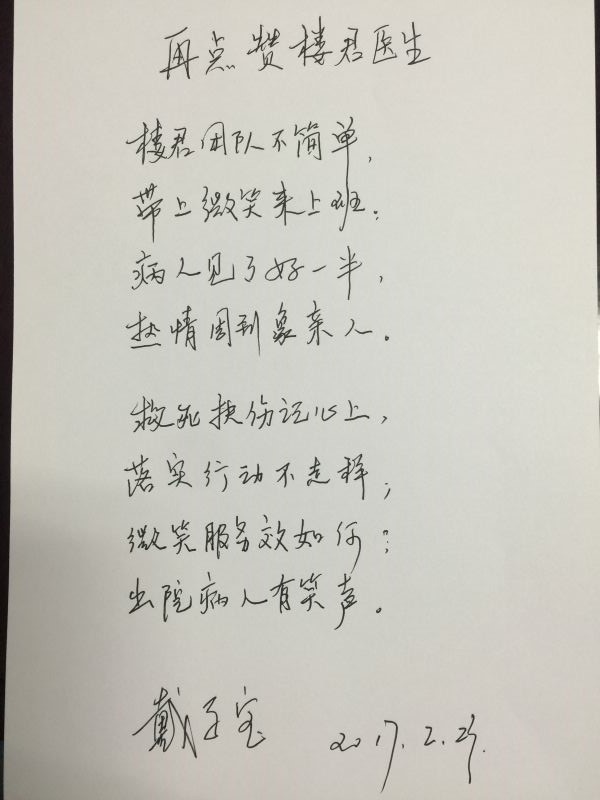 再点赞楼君医生
楼君团队不简单，
带上微笑来上班；
病人见了好一半，
热情周到象亲人。
救死扶伤记心上，
落实行动不走样；
微笑服务效如何？
出院病人有笑声。
戴子宝 2017.2.25.